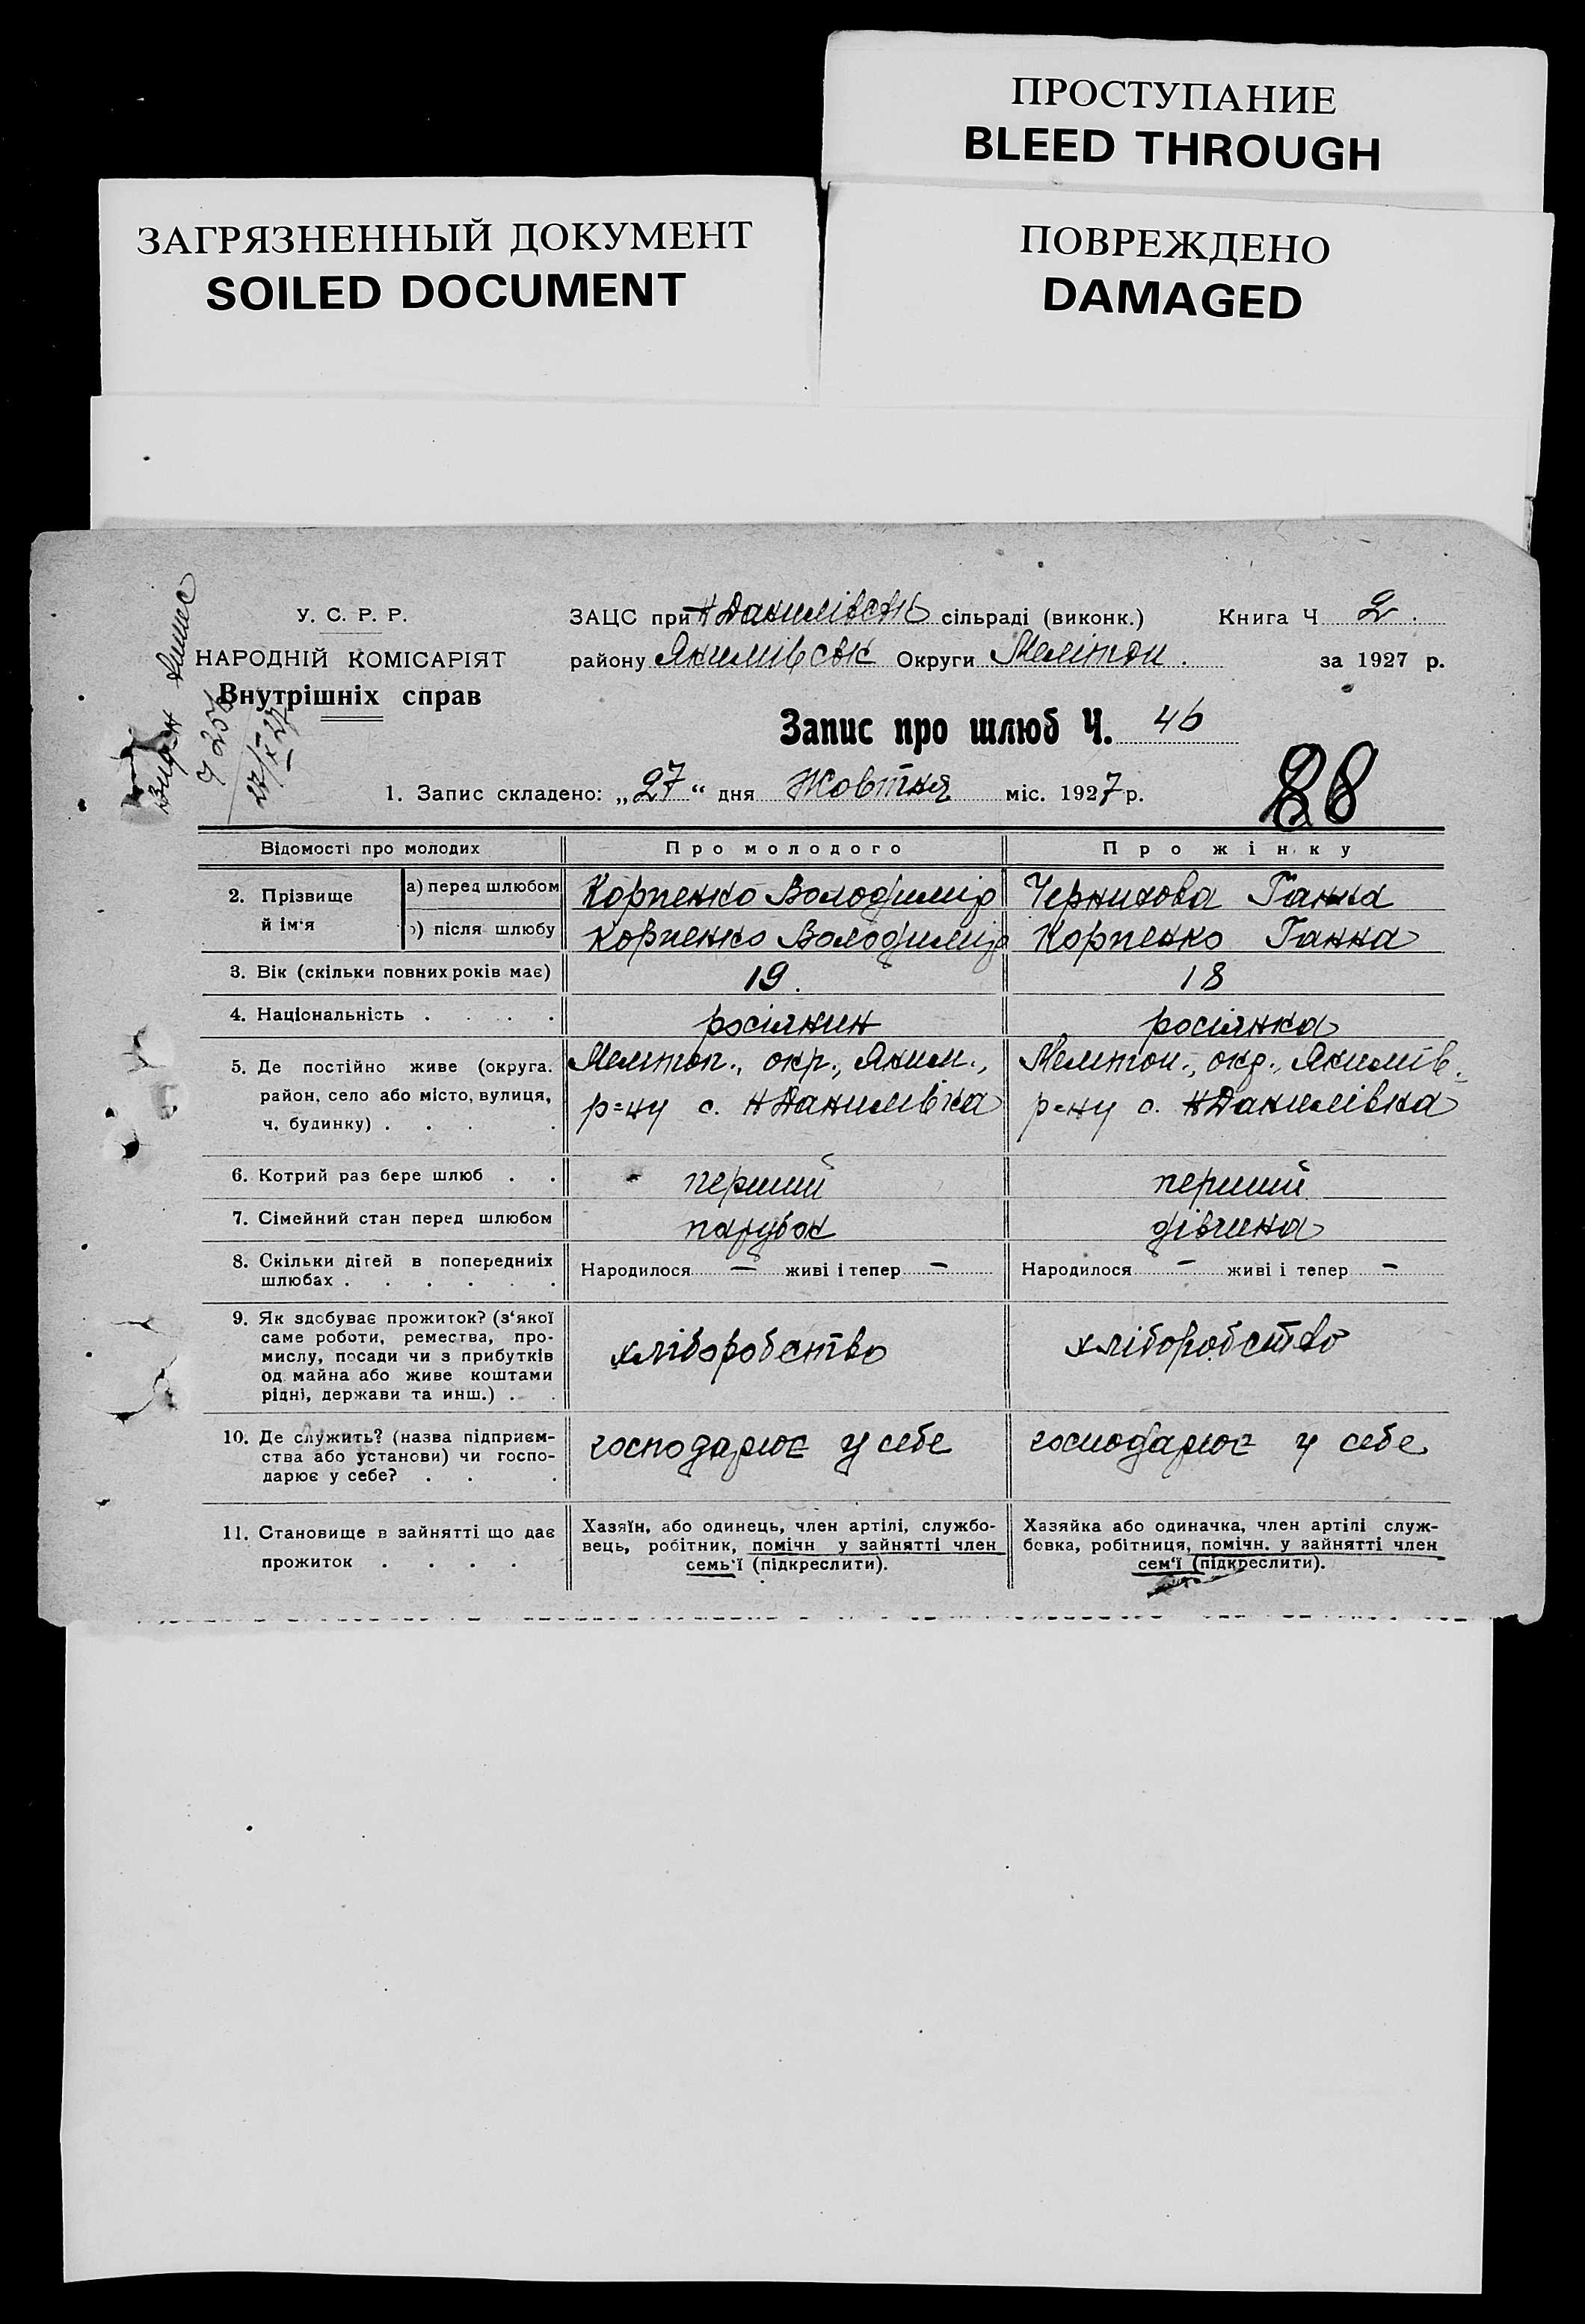 ПРОСТУПАНИЕ
BLEED THROUGH
ЗАГРЯЗНЕННЫЙ ДОКУМЕНТ
SOILED DOCUMENT
ПОВРЕЖДЕНО
DAMAGED
У. С. Р. Р.
НАРОДНІЙ КОМІСАРІЯТ
Внутрішніх справ
Видан
ЗАЦС при Н Данилівськ сільраді (виконк.) Книга Ч 2.
району Якимівськ Округи Меліноп. за 1927 р.
Запис про шлюб Ч. 46
1. Запис складено: „27“ дня Жовтня міс. 1927 р.
88
Відомості про молодих Про молодого Про жінку
2. Прізвище й ім'я а) перед шлюбом Корпенко Володимір Чернихова Ганна
б) після шлюбу Корпенко Володимір Корпенко Ганна
3. Вік (скільки повних років має) 19. 18
4. Національність . . . . росіянин росіянка
5. Де постійно живе (округа. Мелітоп., окр., Яким., Мелітоп., окр., Якимів.
район, село або місто, вулиця, р=ну с. Н Данилівка р=ну с. Н Данилівка
ч. будинку) . . . .
6. Котрий раз бере шлюб . . перший перший
7. Сімейний стан перед шлюбом парубок дівчина
8. Скільки дітей в попередниіх Народилося — живі і тепер — Народилося — живі і тепер —
шлюбах . . . . . .
9. Як здобуває прожиток? (з'якої
саме роботи, ремества, про-
мислу, посади чи з прибутків хліборобство хліборобство
од майна або живе коштами
рідні, держави та инш.) . .
10. Де служить? (назва підприєм- господарює у себе господарює у себе
ства або установи) чи госпо-
дарює у себе? . . .
11. Становище в зайнятті що дає Хазяїн, або одинець, член артілі, службо- Хазяйка або одиначка, член артілі служ-
прожиток . . . . вець, робітник, помічн у зайнятті член бовка, робітниця, помічн. у зайнятті член
семь'ї (підкреслити). сем'ї (підкреслити).